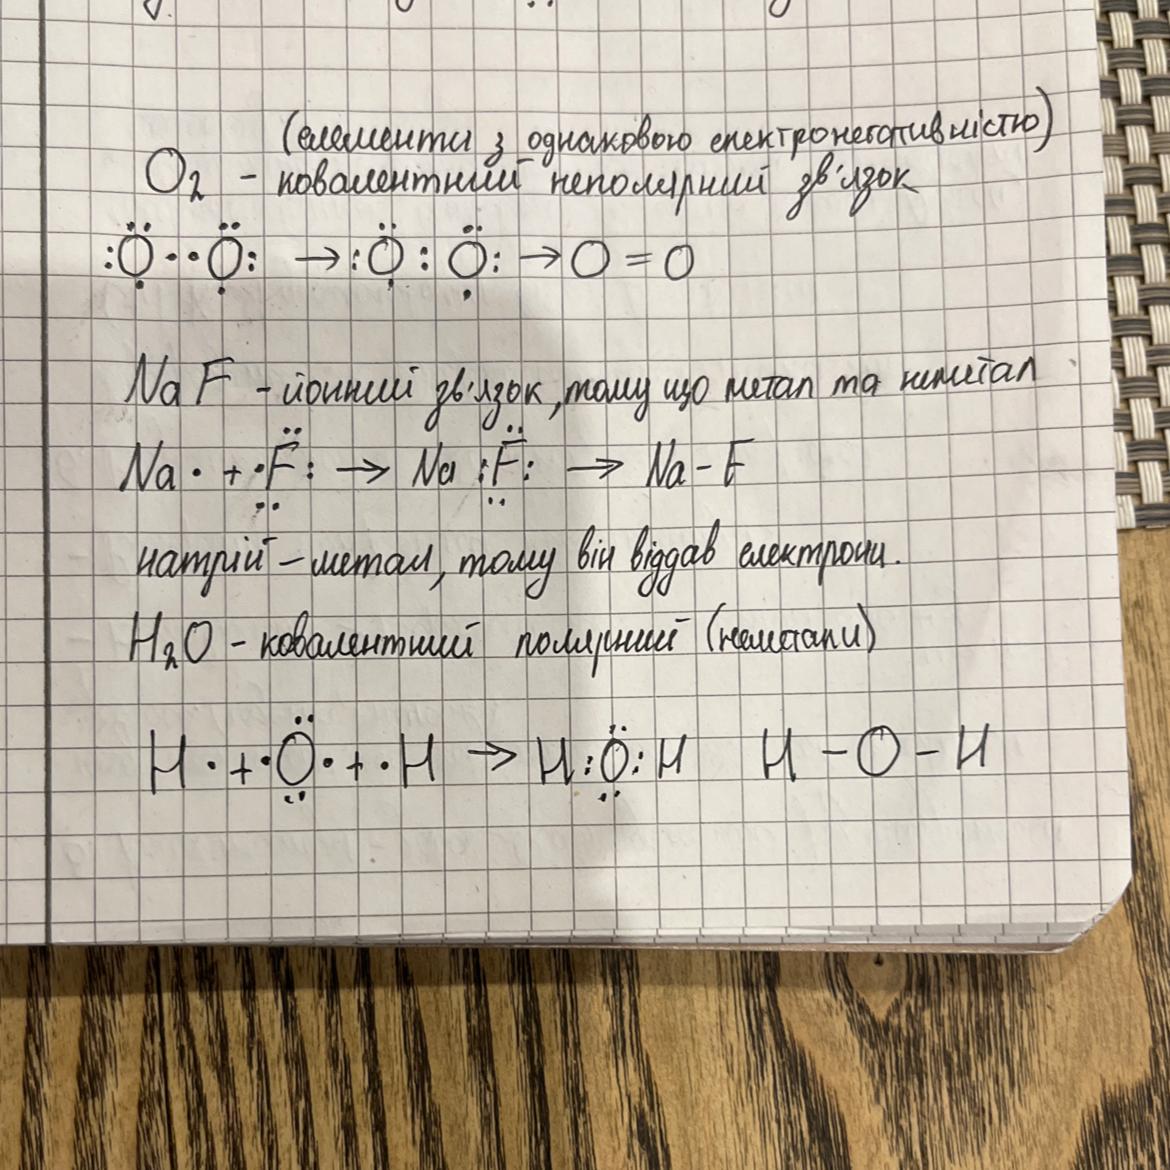 (елементи з однакового електронегативністю)
O₂ - ковалентний неполярний зв'язок
:Ö··Ö: → :Ö : Ö: → O = O
NaF - йонний зв'язок, тому що метал та неметал
Na· + ·F: → Na :F: → Na - F
натрій - метал, тому він віддав електрони.
H₂O - ковалентний полярний (неметали)
H· + ·Ö· + ·H → H:Ö:H H - O - H